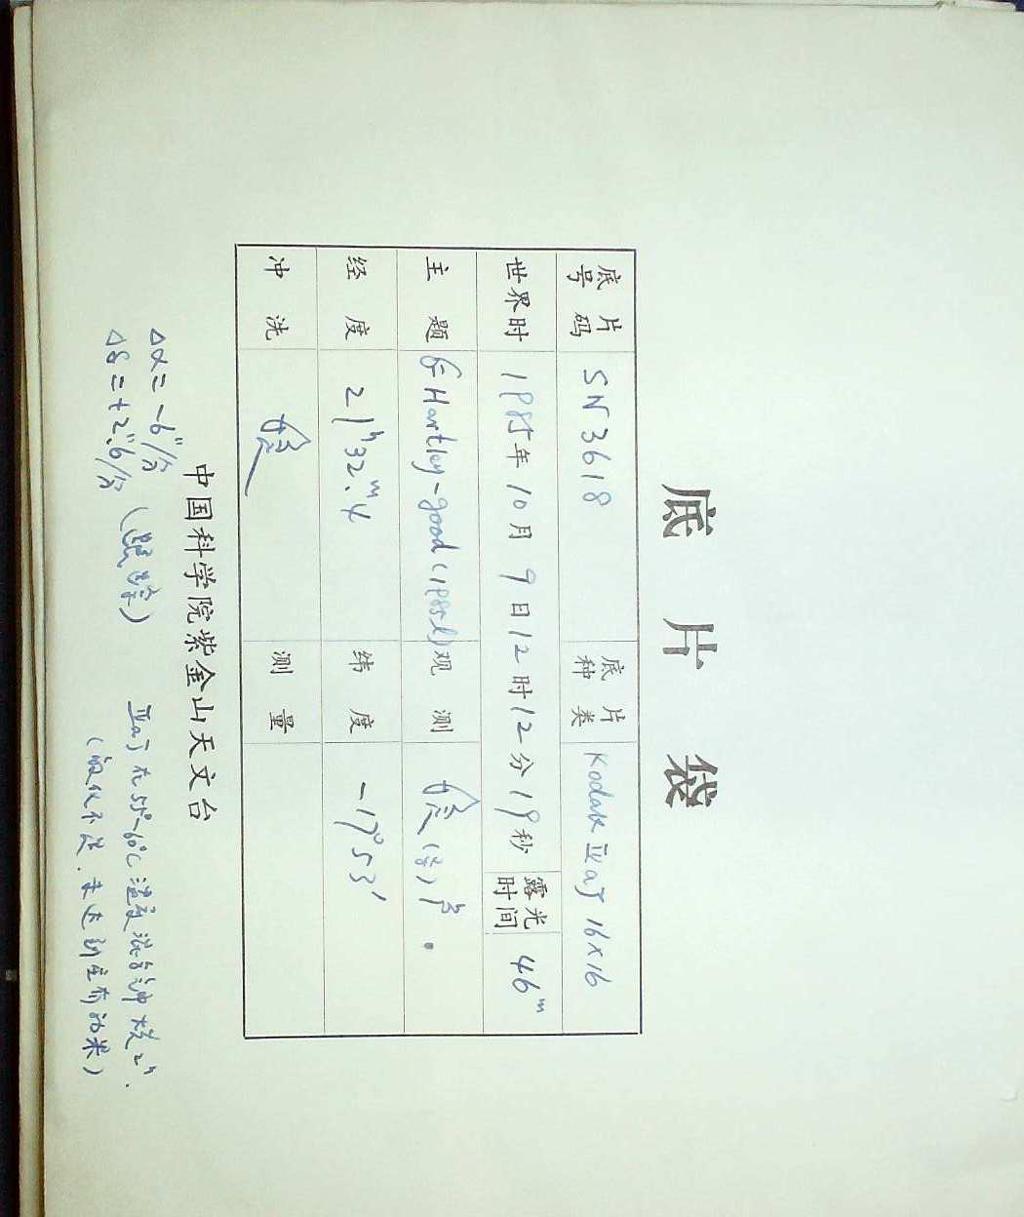 底片袋
底片号码 SN3618 底片种类 Kodak IIaJ 16×16
世界时 1985年10月9日12时12分19秒 露光时间 46ᵐ
主题 Hartley-good (1985l) 观测
经度 21ʰ32ᵐ.4 纬度 -17°53′
冲洗 测量
中国科学院紫金山天文台
Δα = -6″/分
Δδ = +2″.6/分 (跟踪)
IIaJ 在 55°-60℃ 温度 2ʰ.
(敏化不 未达到应有效果)